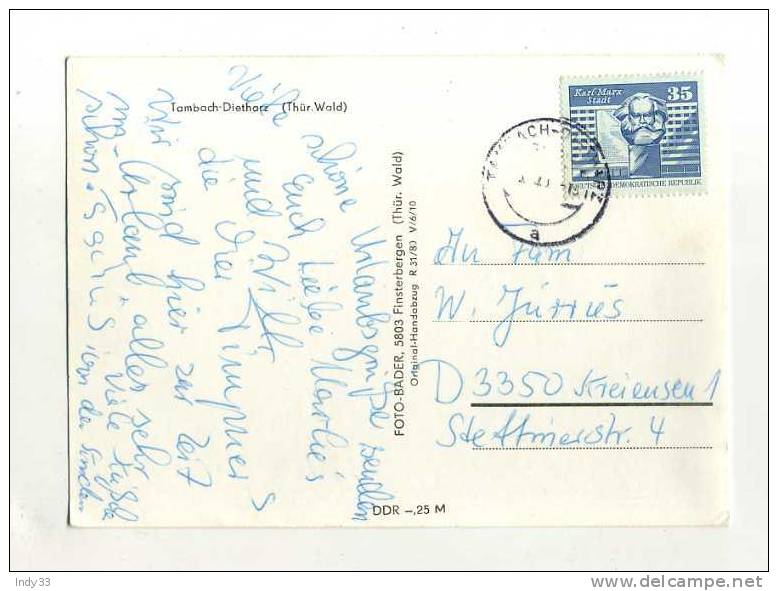 Tambach-Dietharz (Thür. Wald)
Viele schöne Urlaubsgrüße senden
euch liebe Marlies
und Willi
die drei
Wir sind hier zur Zeit
Urlaub, alles sehr
schön. Viele Grüße
von den
FOTO-BÄDER, 5803 Finsterbergen (Thür. Wald)
Original-Handabzug R 31/80 V/6/10
DDR -,25 M
Karl-Marx-
Stadt
35
DEUTSCHE DEMOKRATISCHE REPUBLIK
TAMBACH-D
a
An Fam
W. Jürries
D 3350 Kreiensen 1
Stettinerstr. 4
Indy33
delcampe.net